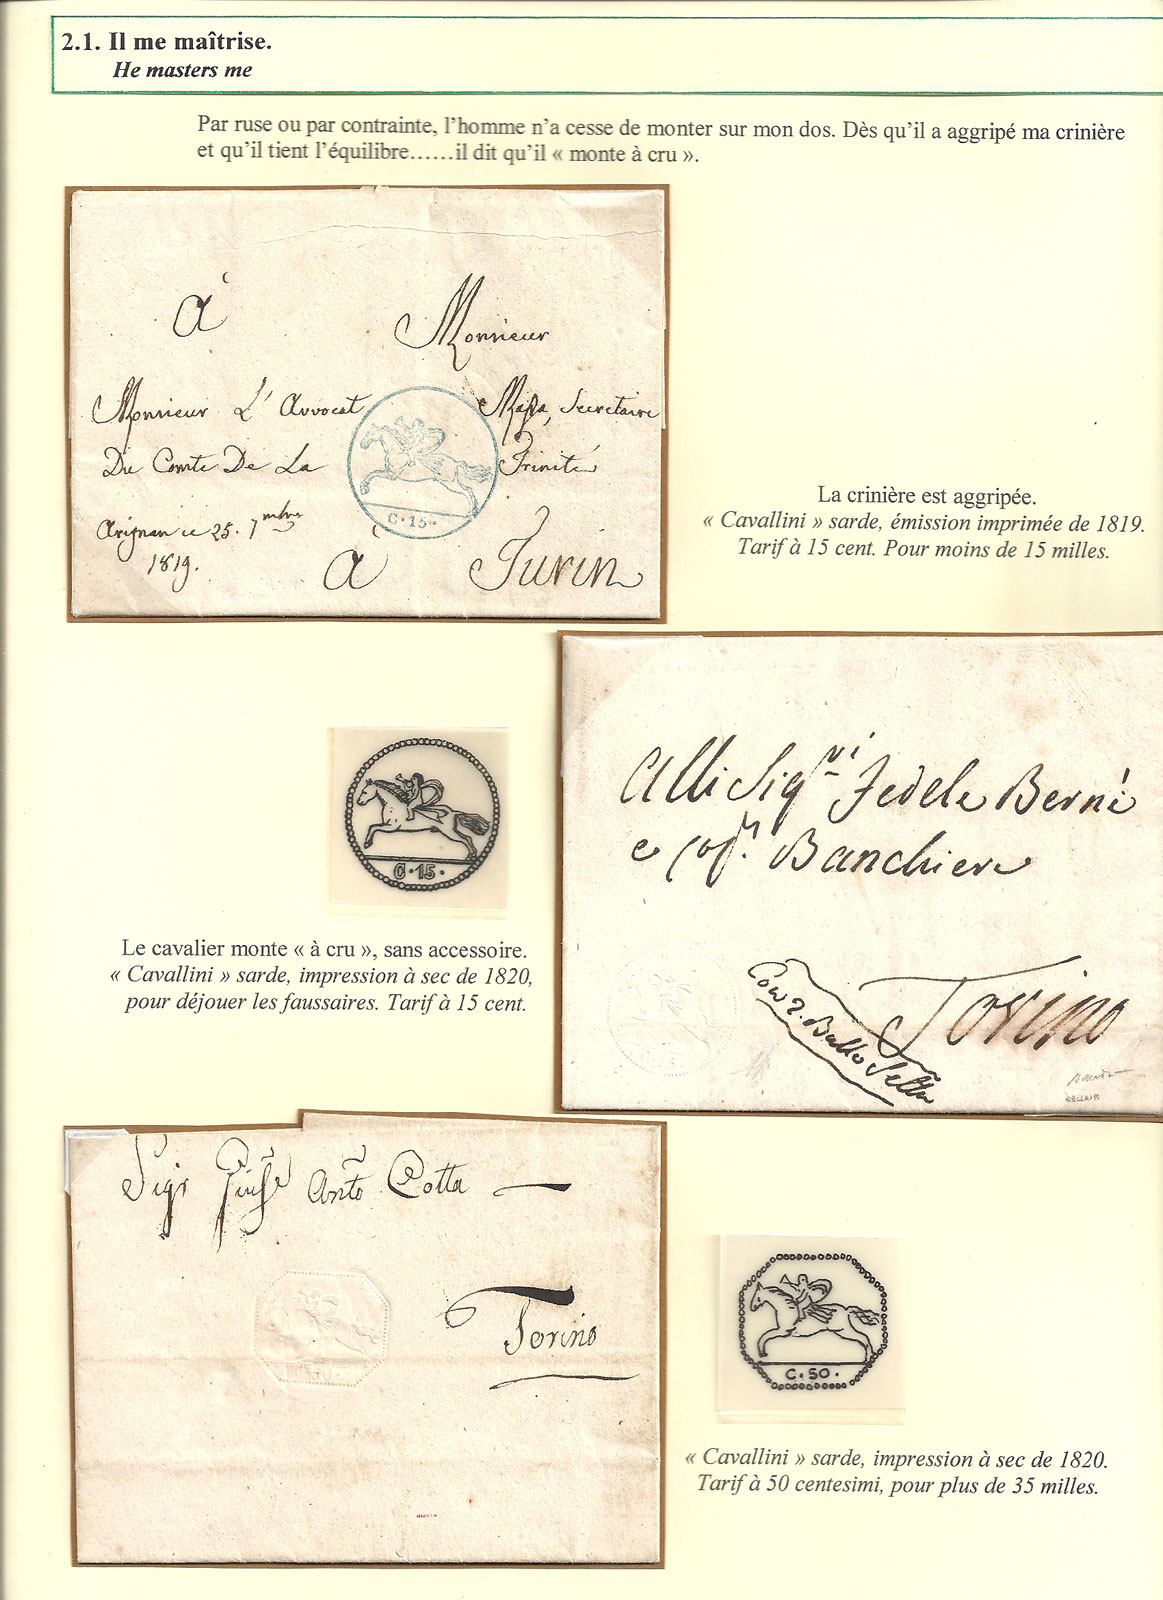 2.1. Il me maîtrise.
He masters me
Par ruse ou par contrainte, l'homme n'a cesse de monter sur mon dos. Dès qu'il a aggripé ma crinière
et qu'il tient l'équilibre……il dit qu'il « monte à cru ».
à Monsieur
Monsieur L'Avvocat Massa, Secretaire
Du Comte De La Trinité
C·15·
ce 25. 7mbre
1819.
à Turin
La crinière est aggripée.
« Cavallini » sarde, émission imprimée de 1819.
Tarif à 15 cent. Pour moins de 15 milles.
Alli Sigri Fedele Berni
e Banchieri
Torino
C·15·
Le cavalier monte « à cru », sans accessoire.
« Cavallini » sarde, impression à sec de 1820,
pour déjouer les faussaires. Tarif à 15 cent.
Sigr Giuse Anto Cotta
Torino
C·50·
« Cavallini » sarde, impression à sec de 1820.
Tarif à 50 centesimi, pour plus de 35 milles.